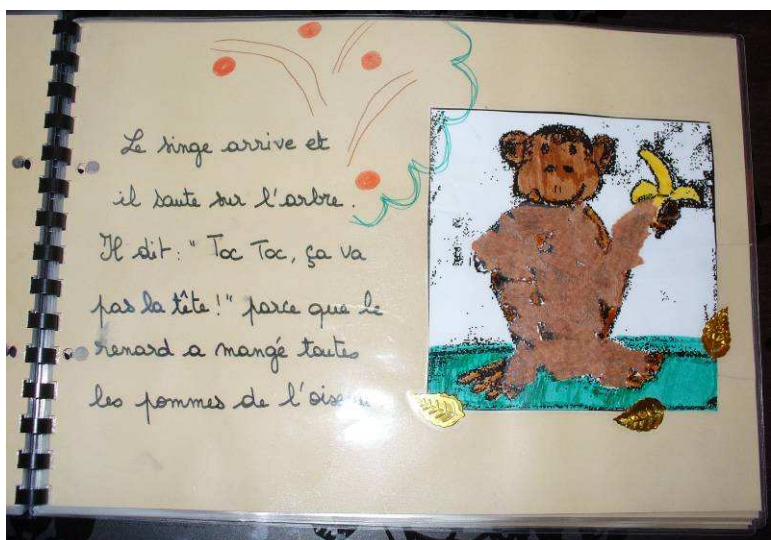 Le singe arrive et
il saute sur l'arbre.
Il dit : " Toc Toc, ça va
pas la tête ! " parce que le
renard a mangé toutes
les pommes de l'oiseau